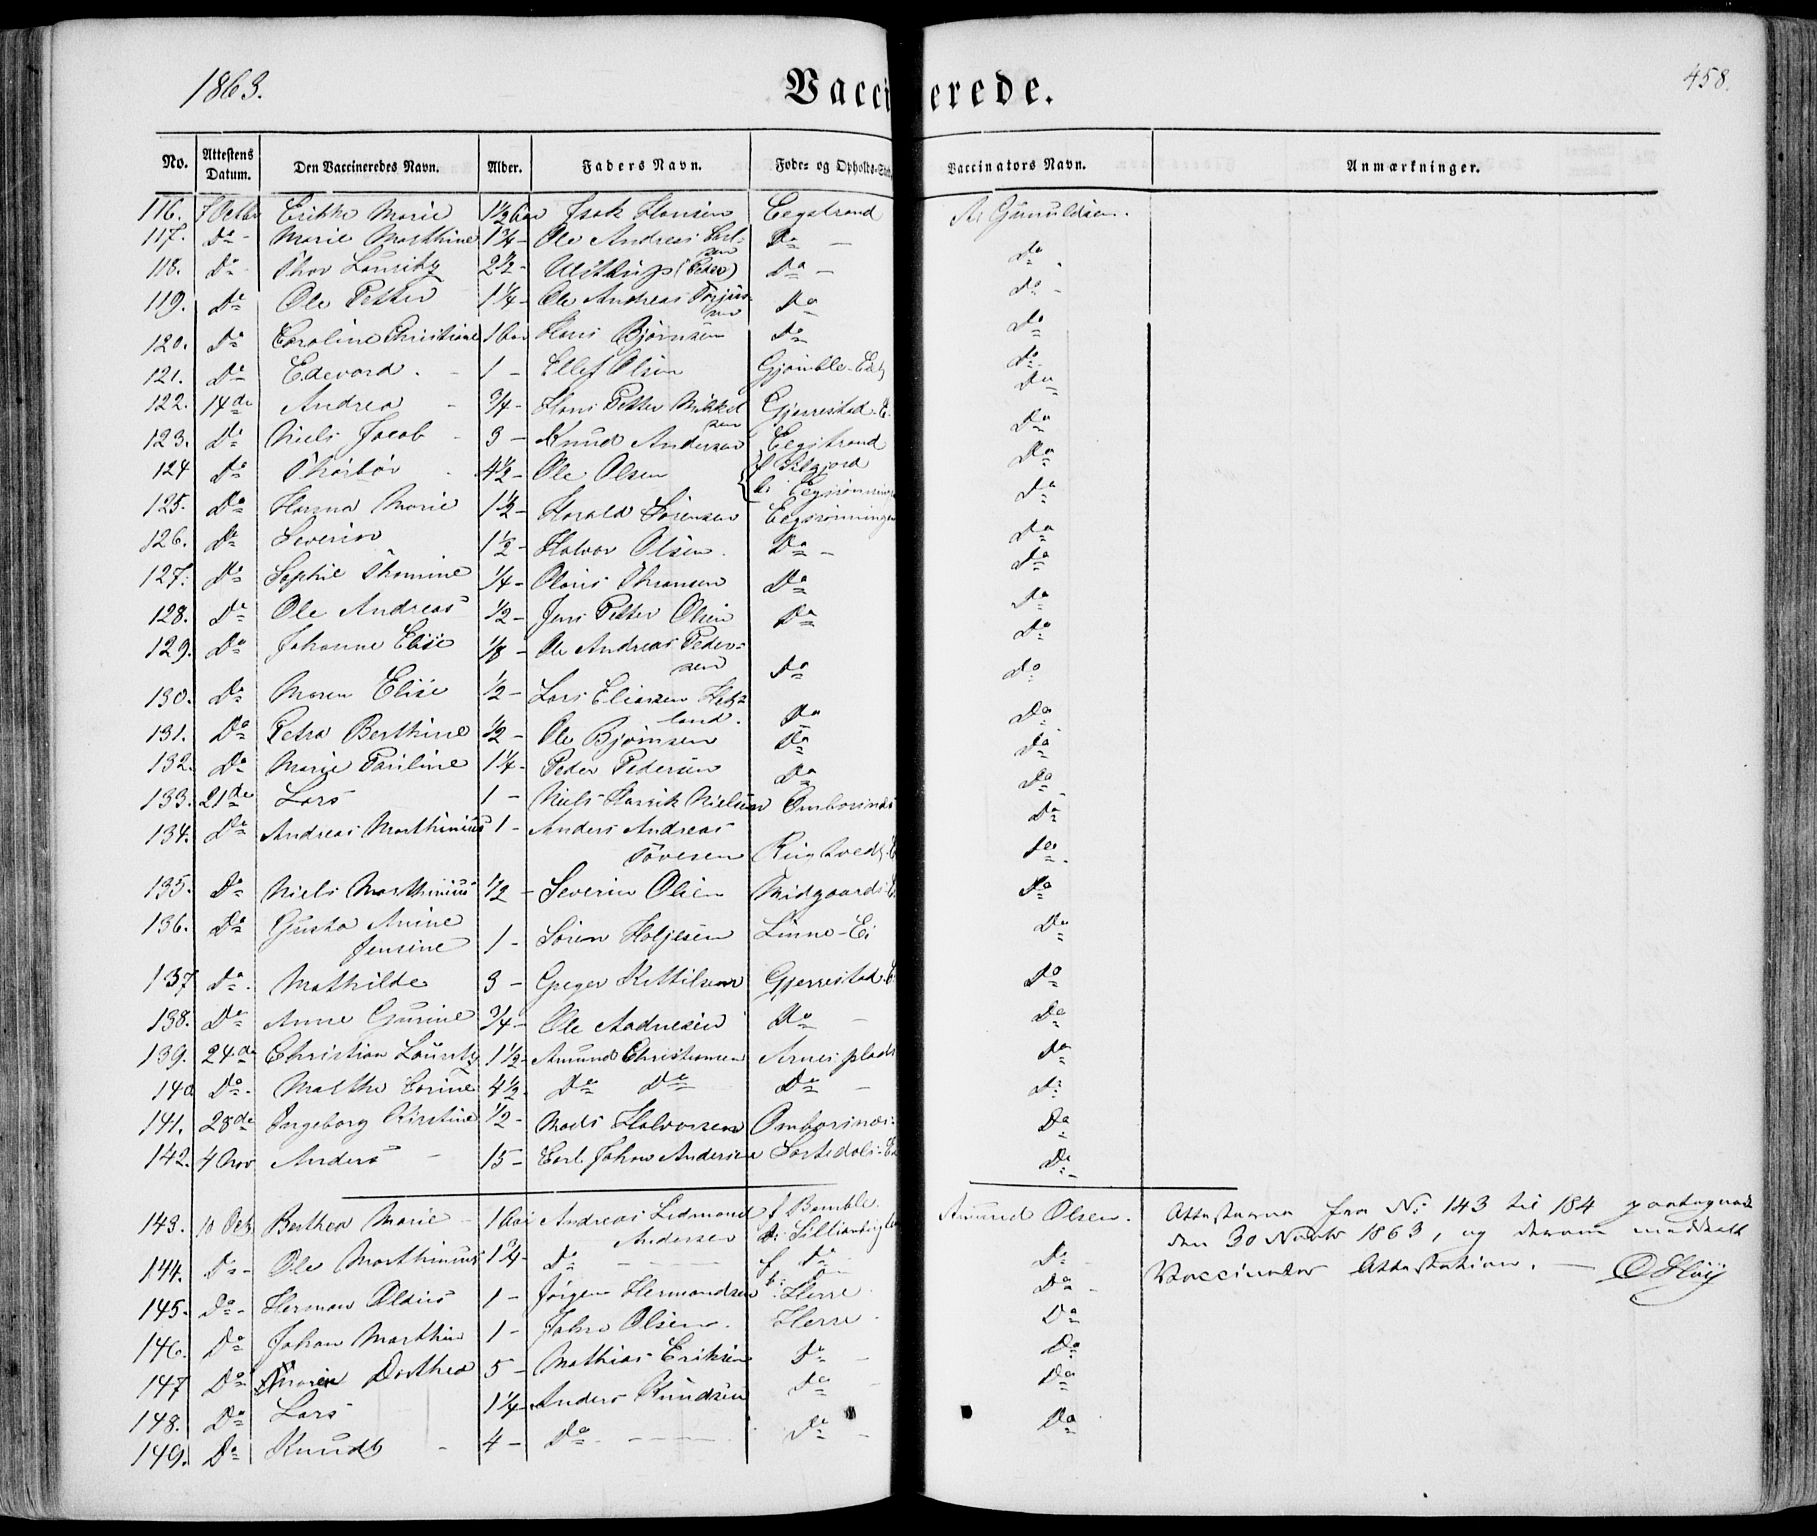 1863.
Vaccinerede.
458.
No. Attestens Datum. Den Vaccineredes Navn. Alder. Faders Navn. Føde- og Opholds- Vaccinators Navn. Anmærkninger.
116. 7 Octbr Erikke Marie 1½ aar Isak Hansen Eegstrand A. Gunuldsen.
117. Do Marie Marthine 1¾ - Ole Andreas Carl-sen Do - Do
118. Do Thor Lauritz 2½ - Ulstrup (Peder) Do - Do
119. Do Ole Petter 1¼ - Ole Andreas Torjus-sen Do Do
120. Do Caroline Christiane 1 aar Hans Bjørnsen Do Do
121. Do Edevard. - 1 - Ellef Olsen Gjømble-Eet Do
122. 14de Andrea - ¾ - Hans Petter Mikkel-sen Gjerrestad-E Do
123. Do Niels Jacob - 3 - Knud Andersen Eegstrand Do
124 Do Thorbør - 4½ - Ole Olsen { f Silgjord
b: Eegsrønning Do
125. Do Hanna Marie 1½ - Harald Sørensen Eegsrønningen Do
126. Do Severin 1½ - Halvor Olsen. Do - Do
127. Do Sophie Thomine ¼ - Olaus Thransen Do Do
128. Do Ole Andreas ½ - Jens Petter Olsen Do Do
129. Do Johanne Elise ⅛ - Ole Andreas Peder-sen Do Do
130. Do Maren Elise ½ - Lars Eliasen Het-land. Do Do
131. Do Petra Berthine ½ - Ole Bjørnsen Do Do
132. Do Marie Pauline 1¼ - Peder Pedersen Do Do
133. 21de Lars 1 - Niels Henrik Nielsen Omborsnæs Do
134. Do Andreas Marthinius 1 - Anders Andreas
Tovesen Rugtvedt-E Do
135. Do Niels Marthinius ½ - Severin Olsen Midgaards-E Do
136. Do Gusta Anine
Jensine 1 - Søren Holjesen Linne-Ei Do
137 Do Mathilde 3 - Greger Kittilsen Gjerrestad-E Do
138. Do Anne Gurine ¾ - Ole Aadnesen Do - Do
139. 24de Christian Lauritz 1½ - Amund Christiansen Arnes plads Do
140 Do - Marthe Corine 4½ Do Do Do - Do
141. 28de Ingeborg Kirstine ½ - Mads Halvorsen Omborsnæs- Do
142. 4 Nov Anders - 15 - Carl Johan Andersen Sortedals-E Do
143. 10 Oct Berthea Marie - 1 aar Andreas Lidmand
Andersen f Bamble
b: Amund Olsen. Attesterne fra No 143 til 184
den 30 Novbr 1863, og derom meddelt
Vaccinator Attestation. -
144. Do - Ole Marthinius 1¾ - Do f Do
b: Do
145. Do - Herman Olaus 1 - Jørgen Hermandsen Herre. Do
146. Do Johan Marthin 1 - John Olsen. Herre. Do
147 Do Maren Dorthea 5 - Mathias Eriksen Do - Do
148. Do Lars 1¼ - Anders Knudsen Do - Do
149. Do Knudt - 4 - Do Do - Do